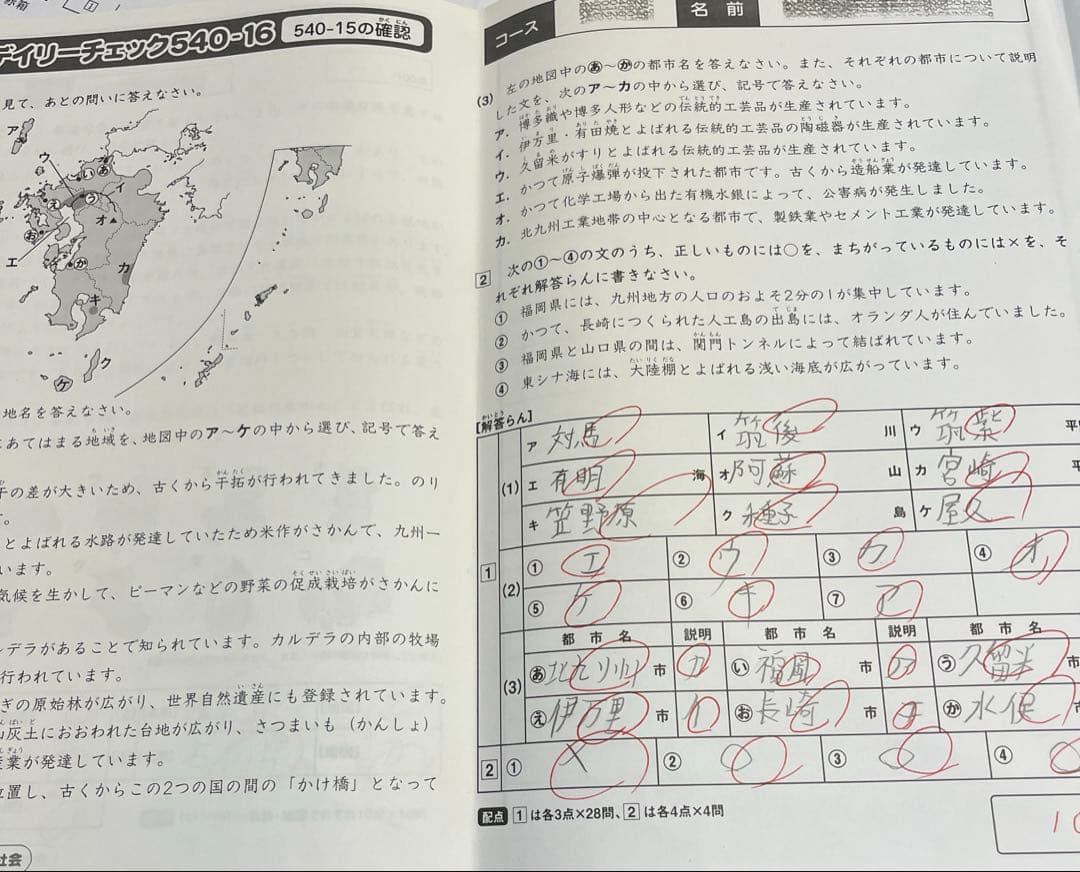 デイリーチェック540-16
540-15の確認
見て、あとの問いに答えなさい。
ア
ウ
い
あ
イ
え
う
オ
お
エ
か
カ
キ
ク
ケ
地名を答えなさい。
あてはまる地域を、地図中のア〜ケの中から選び、記号で答え
の差が大きいため、古くから干拓が行われてきました。のり
す。
とよばれる水路が発達していたため米作がさかんで、九州一
います。
気候を生かして、ピーマンなどの野菜の促成栽培がさかんに
ルデラがあることで知られています。カルデラの内部の牧場
行われています。
ぎの原始林が広がり、世界自然遺産にも登録されています。
灰土におおわれた台地が広がり、さつまいも（かんしょ）
業が発達しています。
位置し、古くからこの2つの国の間の「かけ橋」となって
社会
コース
名前
(3) 左の地図中のあ〜かの都市名を答えなさい。また、それぞれの都市について説明
した文を、次のア〜カの中から選び、記号で答えなさい。
ア. 博多織や博多人形などの伝統的工芸品が生産されています。
イ. 伊万里・有田焼とよばれる伝統的工芸品の陶磁器が生産されています。
ウ. 久留米がすりとよばれる伝統的工芸品が生産されています。
エ. かつて原子爆弾が投下された都市です。古くから造船業が発達しています。
オ. かつて化学工場から出た有機水銀によって、公害病が発生しました。
カ. 北九州工業地帯の中心となる都市で、製鉄業やセメント工業が発達しています。
2 次の①〜④の文のうち、正しいものには○を、まちがっているものには×を、そ
れぞれ解答らんに書きなさい。
① 福岡県には、九州地方の人口のおよそ2分の1が集中しています。
② かつて、長崎につくられた人工島の出島には、オランダ人が住んでいました。
③ 福岡県と山口県の間は、関門トンネルによって結ばれています。
④ 東シナ海には、大陸棚とよばれる浅い海底が広がっています。
[解答らん]
1 (1) ア 対馬 イ 筑後 川 ウ 筑紫 平
エ 有明 海 オ 阿蘇 山 カ 宮崎 平
キ 笠野原 ク 種子 島 ケ 屋久
(2) ① エ ② ウ ③ カ ④ オ
⑤ ケ ⑥ キ ⑦ ア
(3) 都市名 説明 都市名 説明 都市名
あ 北九州 市 カ い 福岡 市 ア う 久留米 市
え 伊万里 市 イ お 長崎 市 エ か 水俣 市
2 ① × ② ○ ③ ○ ④ ○
配点 1 は各3点×28問、2 は各4点×4問